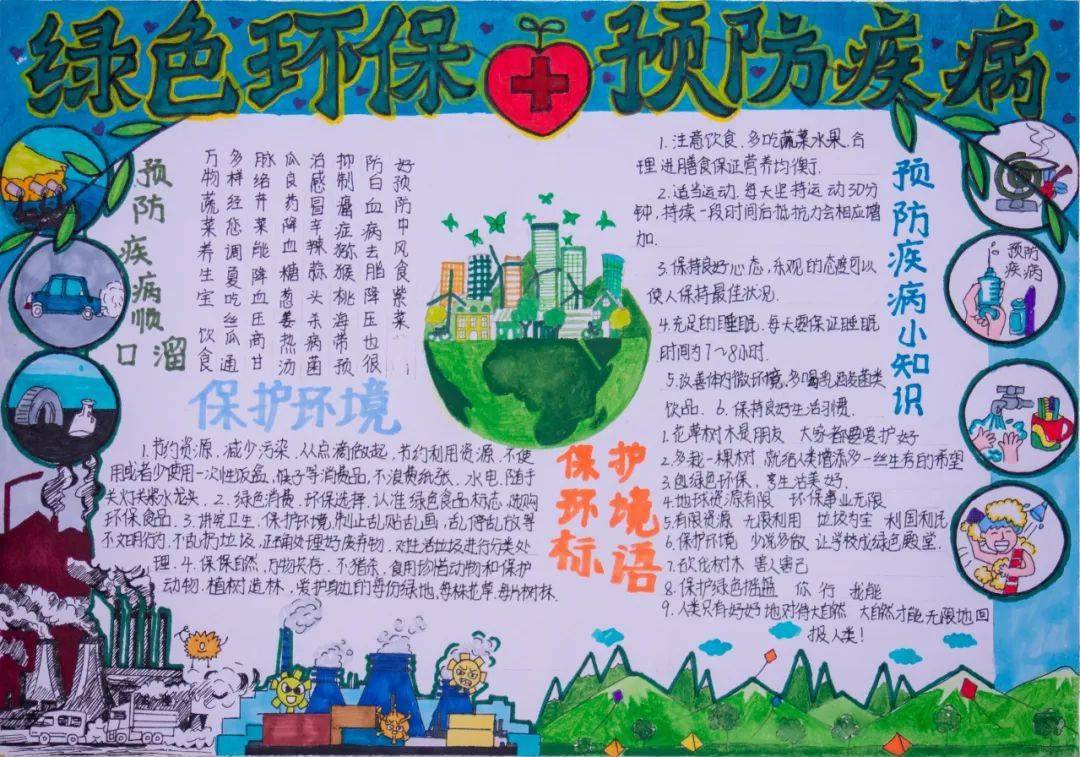 绿色环保 预防疾病
预防疾病顺口溜
万物蔬菜养生宝 饮食
多样经您调夏吃丝瓜通
脉络并菜能降血压商甘
瓜良药降血糖葱姜热汤
治感冒辛辣蒜头杀病菌
抑制癌症猕猴桃海带预
防白血病去脂降压也很
好预防中风食紫菜！
保护环境
1.节约资源、减少污染、从点滴做起、节约利用资源、不使
用或者少使用一次性饭盒、筷子等消费品、不浪费纸张、水电、随手
关灯关紧水龙头、2.绿色消费、环保选择、认准绿色食品标志、选购
环保食品、3.讲究卫生、保护环境、制止乱贴乱画，乱停乱放等
不文明行为、不乱扔垃圾、正确处理好废弃物、对生活垃圾进行分类处
理、4.保保自然、万物长存、不猎杀、食用珍惜动物和保护
动物、植树造林，爱护身边的每份绿地、每株花草、每片树林.
预防疾病小知识
1.注意饮食、多吃蔬菜水果、合
理进用膳食保证营养均衡.
2.适当运动、每天坚持运动30分
钟，持续一段时间后抵抗力会相应增
加.
3.保持良好心态，乐观的态度可以
使人保持最佳状况.
4.充足的睡眠、每天要保证睡眠
时间为7～8小时.
5.改善体内微环境、多喝乳酸菌类
饮品. 6.保持良好生活习惯.
保护环境标语
1.花草树木是朋友 大家都要爱护好
2.多栽一棵树 就给人类增添多一丝生存的希望
3.创绿色环保、享生活美好
4.地球资源有限 环保事业无限
5.有限资源 无限利用 垃圾为宝 利国利民
6.保护环境 少说多做 让学校成绿色殿堂.
7.砍伐树木 害人害己
8.保护绿色摇篮 你行 我能
9.人类只有好好地对待大自然 大自然才能无限地回
报人类！
预防
疾病